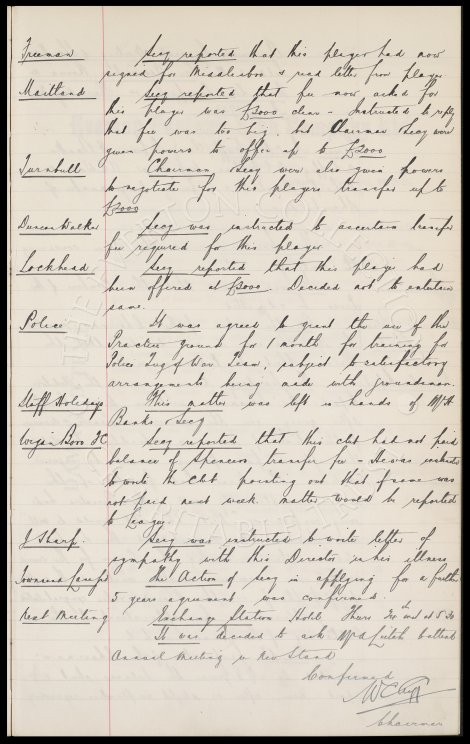 Freeman Secy reported that this player had now
signed for Middlesboro & read letter from player
Maitland Secy reported that fee now asked for
this player was £3000 clear - Instructed to reply
that fee was too big, but Chairman Secy were
given powers to offer up to £2000
Turnbull Chairman Secy were also given powers
to negotiate for this players transfer up to
£3000
Duncan Walker Secy was instructed to ascertain transfer
fee required for this player
Lockhead Secy reported that this player had
been offered at £3000. Decided not to entertain
same.
Police It was agreed to grant the use of the
Practice ground for 1 month for training for
Police Tug of War Team, subject to satisfactory
arrangements being made with groundsman.
Staff Holidays This matter was left in hands of Mr H
Banks & Secy
Wigan Boro FC Secy reported that this club had not paid
balance of Spencers transfer fee - It was instructed
to write the club pointing out that if same was
not paid next week matter would be reported
to League.
J Sharp. Secy was instructed to write letter of
sympathy with this Director in his illness
The Action of Secy in applying for a further
5 years agreement was confirmed.
Next Meeting Exchange Station Hotel Thurs at 5.30
It was decided to ask Mr
Annual Meeting in New Stand
Confirmed
W C Cuff
Chairman
THE EVERTON COLLECTION
CHARITABLE TRUST